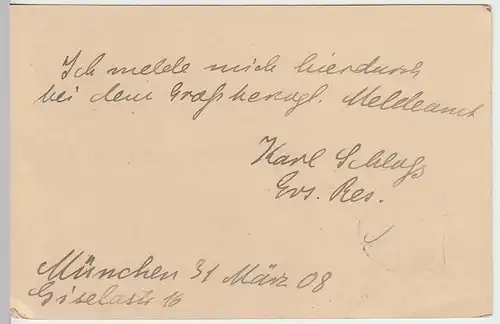 Ich melde mich hierdurch
bei dem Großherzogl. Meldeamt
Karl Schloß
Ers. Res.
München 31 März 08
Giselastr 16